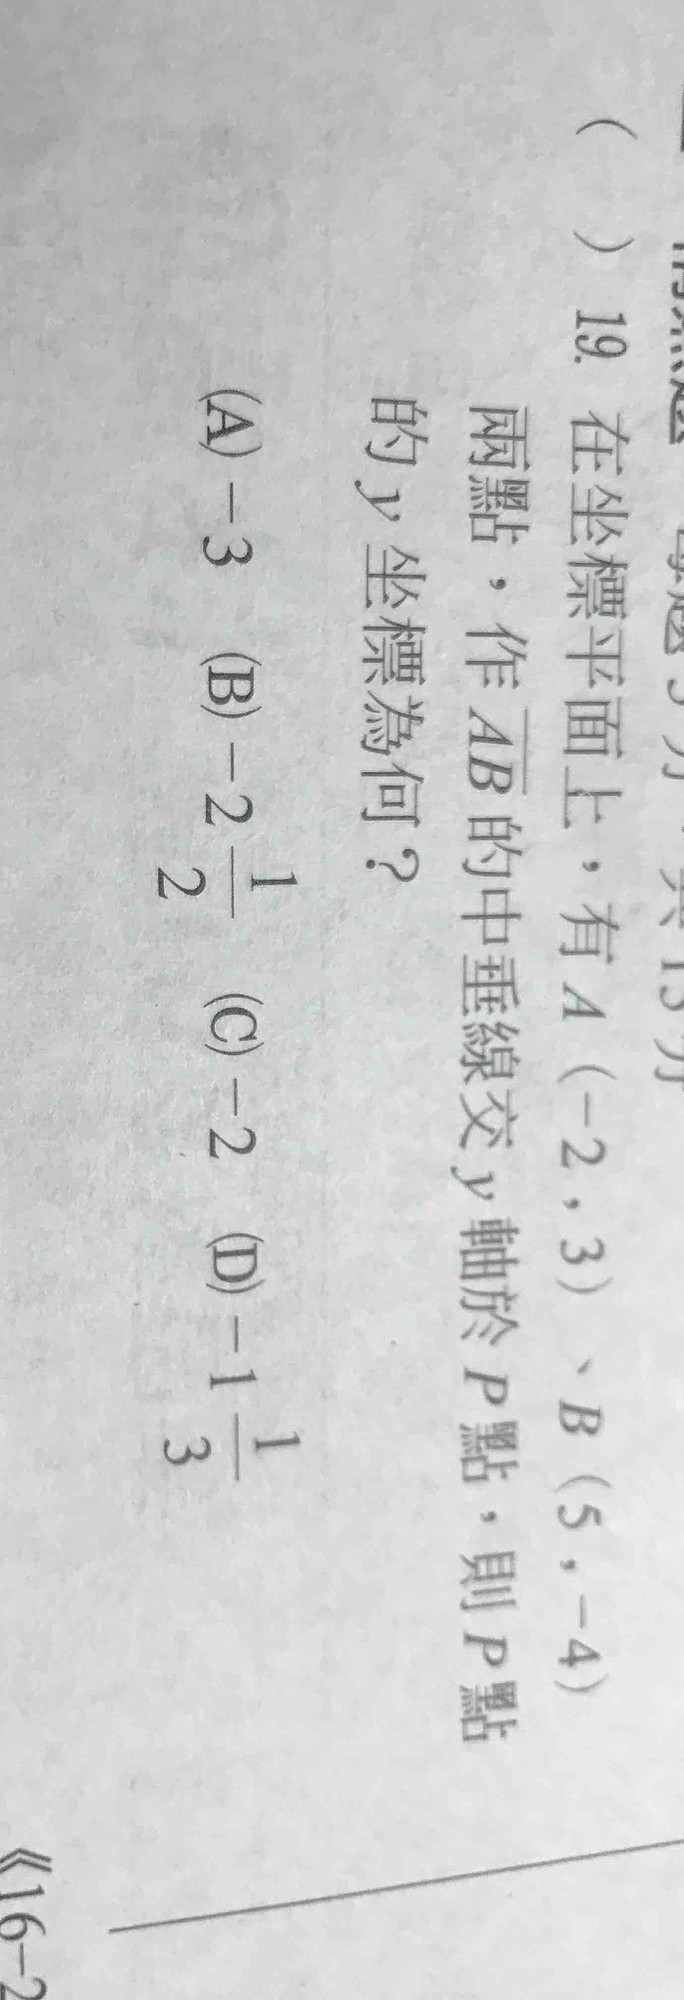 每題5分，共15分
(　) 19. 在坐標平面上，有 A (-2,3)、B (5,-4)
兩點，作 A̅B̅ 的中垂線交 y 軸於 P 點，則 P 點
的 y 坐標為何？
(A) -3 (B) -2 1/2 (C) -2 (D) -1 1/3
《16-2